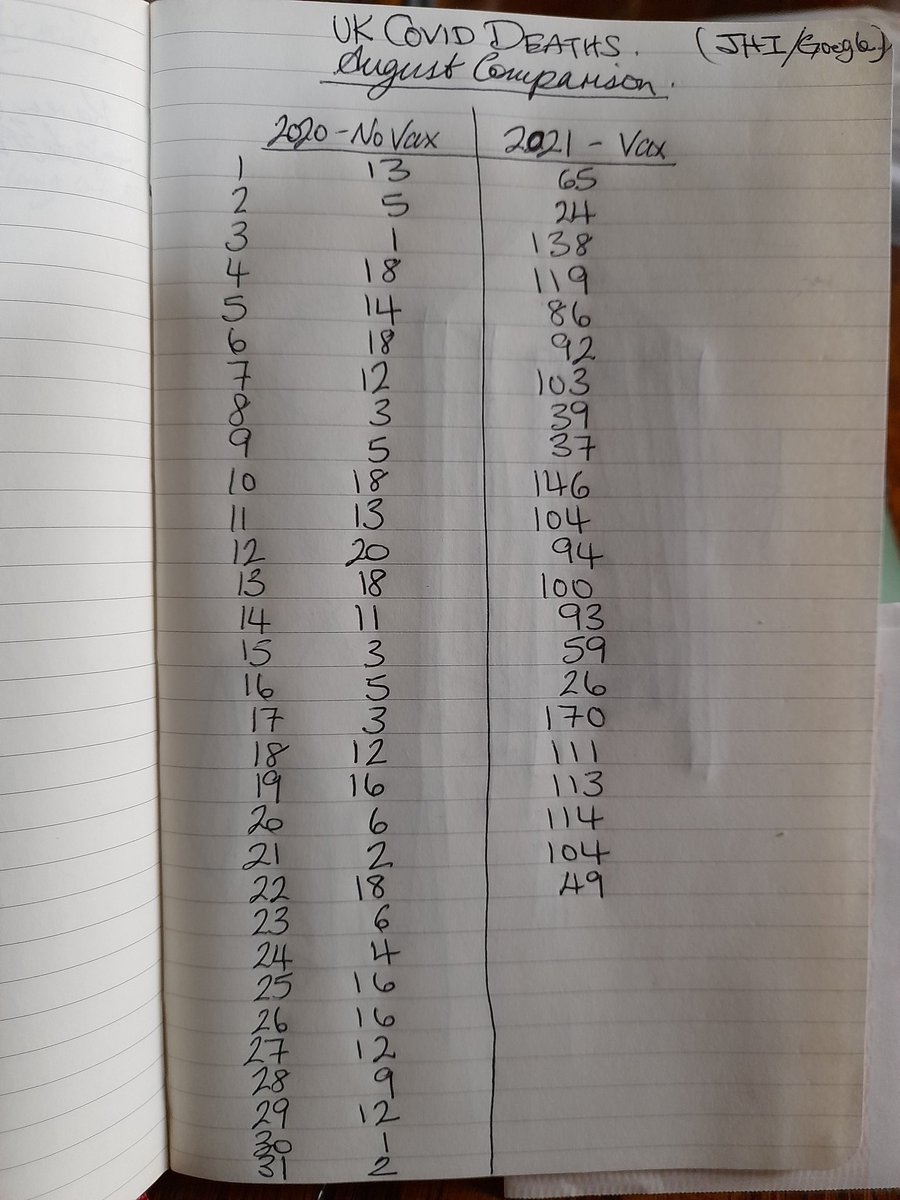 UK COVID DEATHS. (JHI/Google)
August Comparison.
2020 - No Vax 2021 - Vax
1 13 65
2 5 24
3 1 138
4 18 119
5 14 86
6 18 92
7 12 103
8 3 39
9 5 37
10 18 146
11 13 104
12 20 94
13 18 100
14 11 93
15 3 59
16 5 26
17 3 170
18 12 111
19 16 113
20 6 114
21 2 104
22 18 49
23 6
24 4
25 16
26 16
27 12
28 9
29 12
30 1
31 2